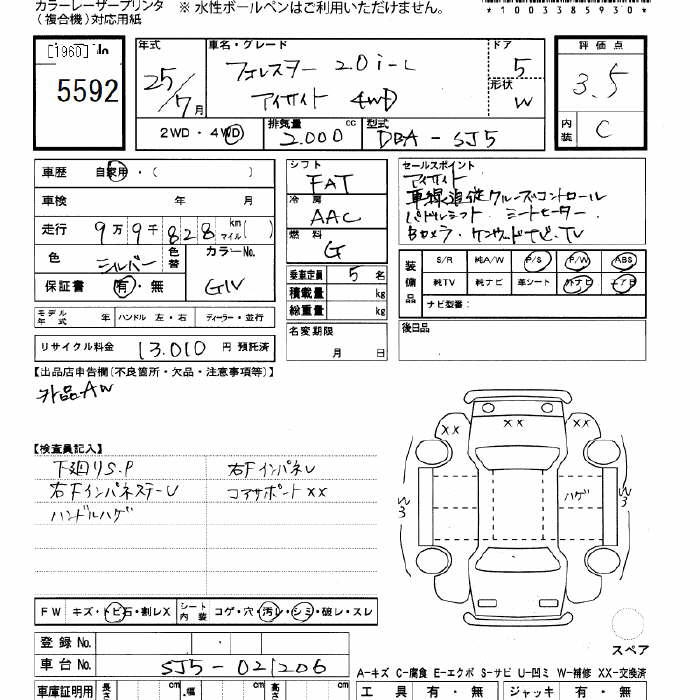 カラーレーザープリンタ ※ 水性ボールペンはご利用いただけません。
(複合機)対応用紙
*1003385930*
[1960]
5592
年式 25/7月
車名・グレード フォレスター 2.0i-L
アイサイト 4WD
ドア 5
形状 W
評価点 3.5
内装 C
2WD・4WD
排気量 2.000 cc
型式 DBA-SJ5
車歴 自家用・( )
車検 年 月
走行 9万9千828 km マイル( )
色 シルバー 色替
カラーNo. G1V
保証書 有・無
モデル年式 年 ハンドル 左・右 ディーラー・並行
リサイクル料金 13,010円 預託済
シフト FAT
冷房 AAC
燃料 G
乗車定員 5名
積載量 kg
総重量 kg
名変期限
月 日
セールスポイント
アイサイト
車線追従クルーズコントロール
パドルシフト シートヒーター
Bカメラ・ケンウッドナビ・TV
装備品 S/R 純A/W P/S P/W ABS
純TV 純ナビ 革シート 外ナビ エアB
ナビ型番:
後日品
【出品店申告欄(不良箇所・欠品・注意事項等)】
外品AW
【検査員記入】
下廻りS.P 右FインパネU
右FインパネステーU コアサポートXX
ハンドルハゲ
XX XX XX
W3 ハゲ W3
FW キズ・トビ石・割レX シート内装 コゲ・穴・汚レ・シミ・破レ・スレ
登録No.
車台No. SJ5-021206
スペア
A-キズ C-腐食 E-エクボ S-サビ U-凹ミ W-補修 XX-交換済
車庫証明用 長さ cm 幅 cm 高さ cm
工具 有・無 ジャッキ 有・無